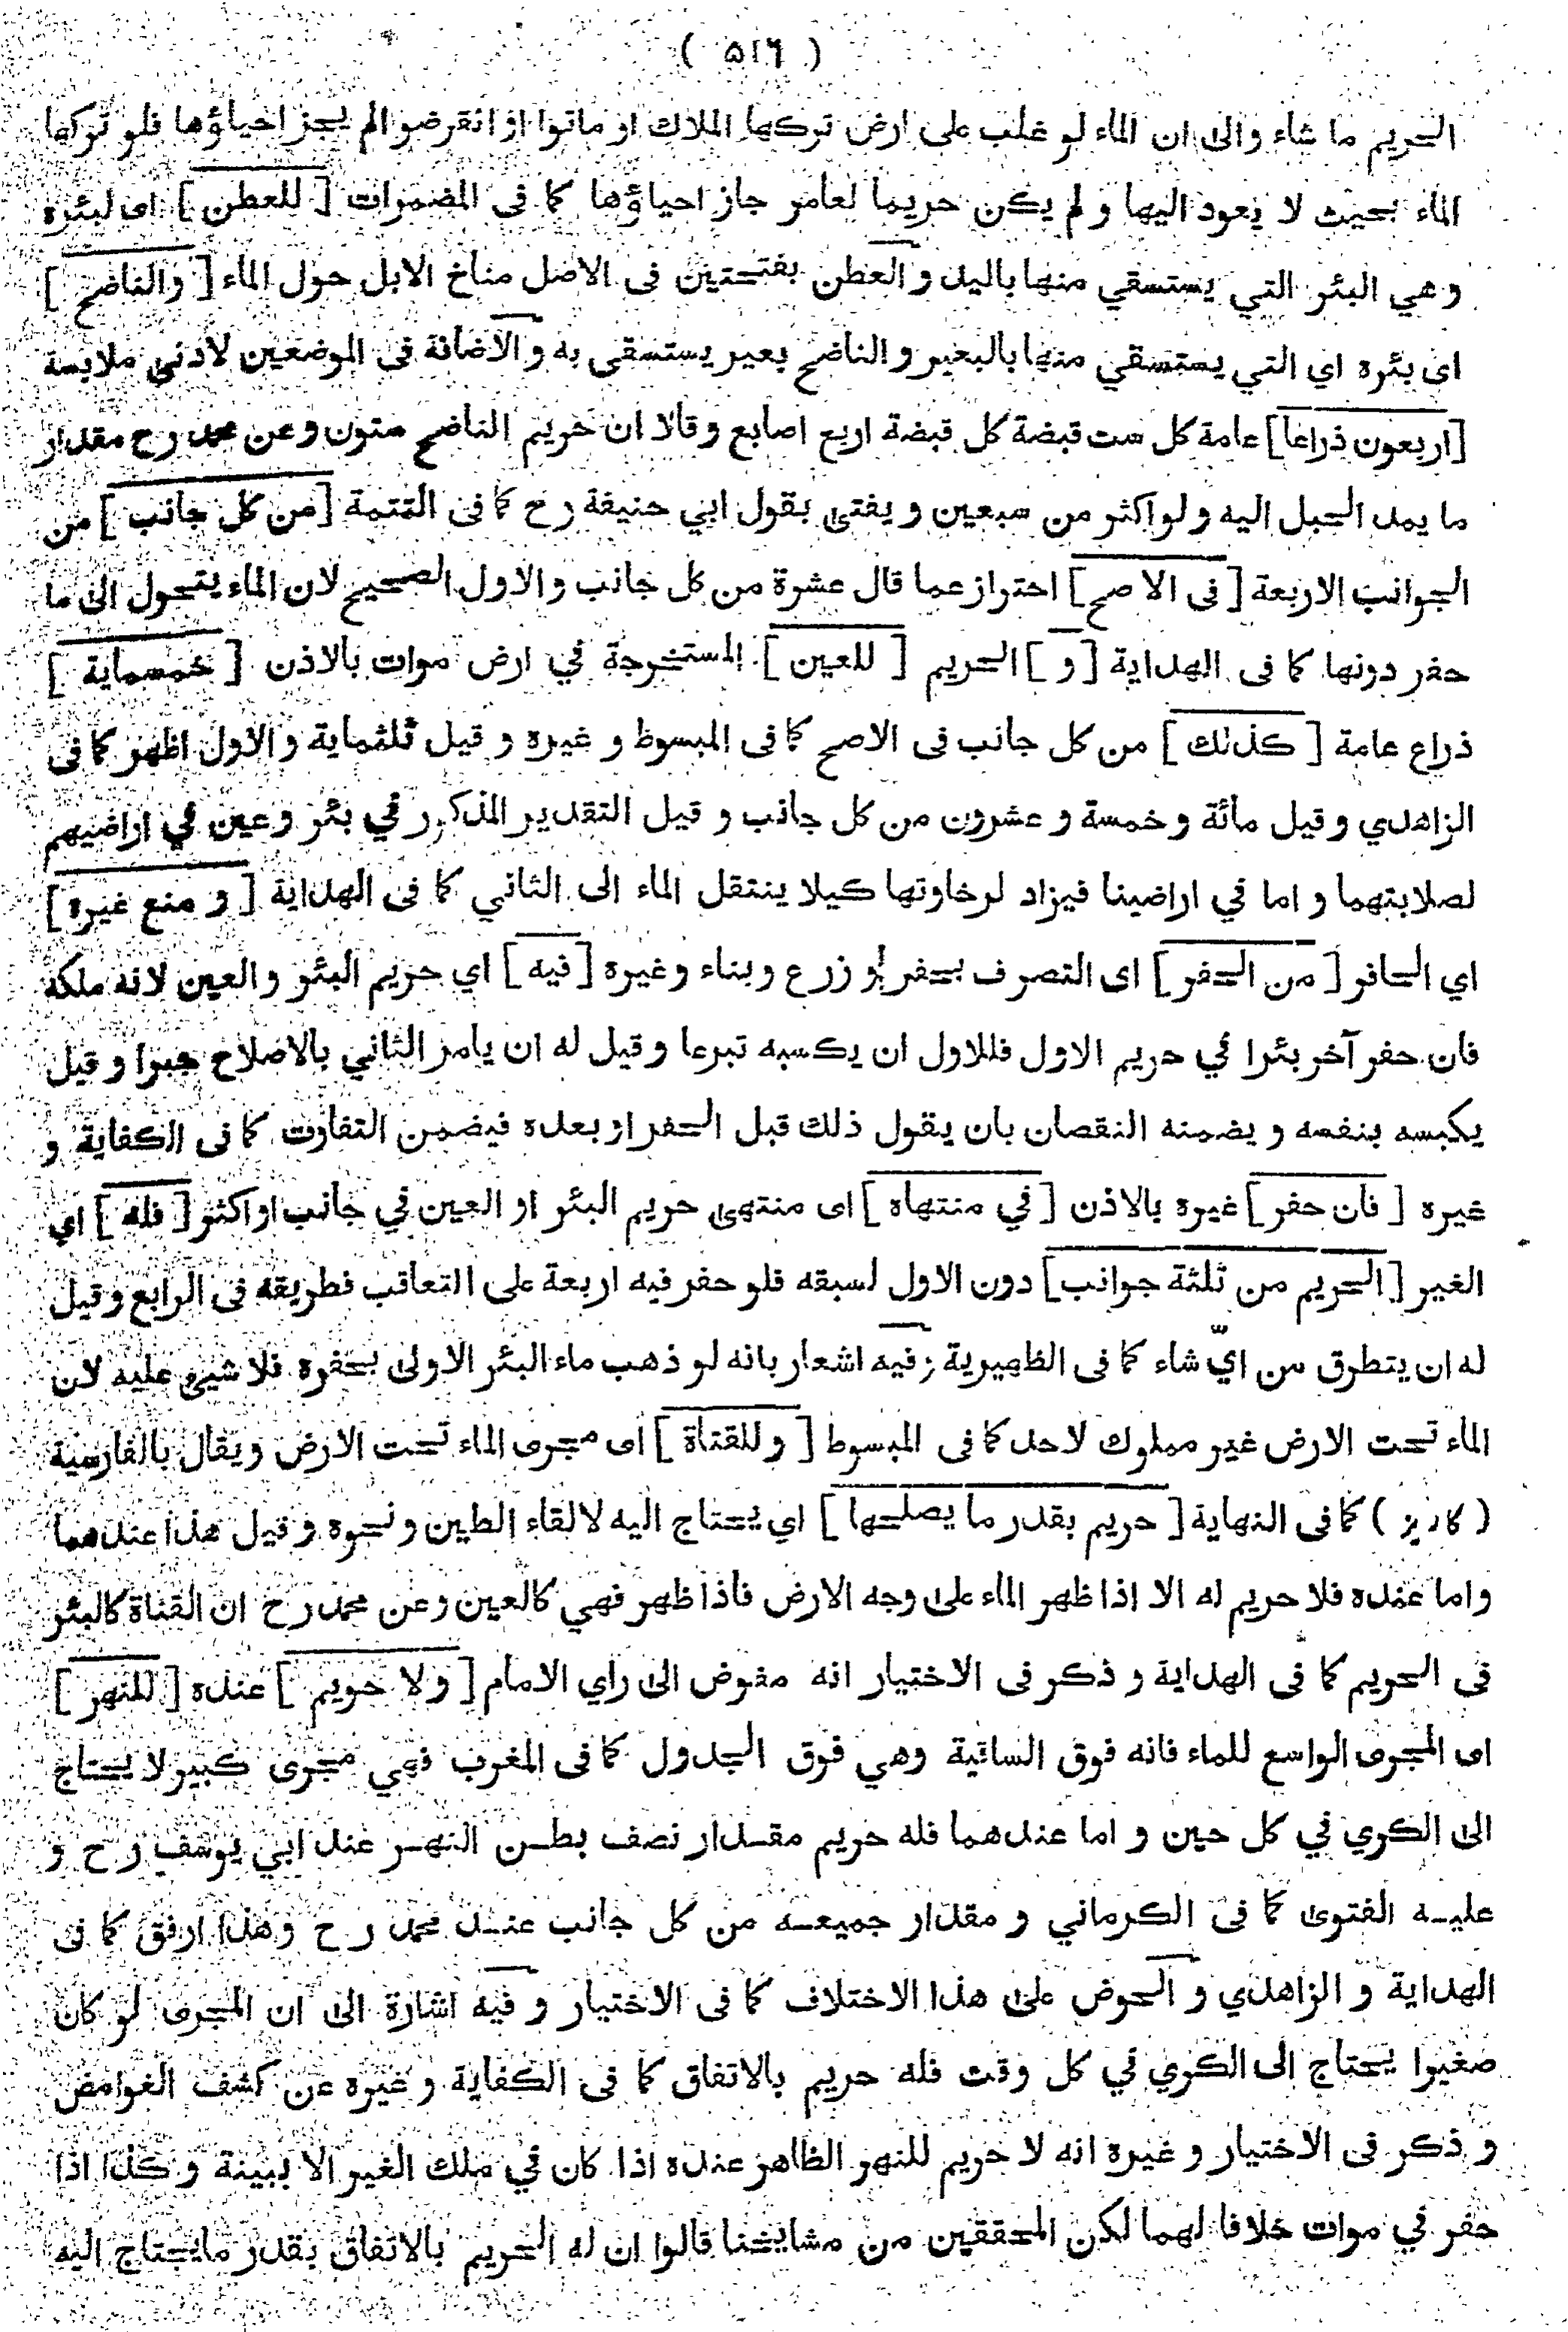 ( ٥١٦ )
الحريم ما شاء والى ان الماء لو غلب على ارض تركها الملاك او ماتوا او انقرضوا لم يجز احياؤها فلو تركها
الماء بحيث لا يعود اليها و لم يكن حريما لعامر جاز احياؤها كما فى المضمرات [ للعطن ] اى لبئره
وهي البئر التي يستسقي منها باليد و العطن بفتحتين فى الاصل مناخ الابل حول الماء [ والناضح ]
اى بئره اي التي يستسقي منها بالبعير و الناضح بعير يستسقى به و الاضافة فى الموضعين لادنى ملابسة
[اربعون ذراعا] عامة كل ست قبضة كل قبضة اربع اصابع و قالا ان حريم الناضح ستون و عن محمد رح مقدار
ما يمد الحبل اليه و لو اكثر من سبعين و يفتى بقول ابي حنيفة رح كما فى التتمة [من كل جانب ] من
الجوانب الاربعة [فى الاصح] احتراز عما قال عشرة من كل جانب و الاول الصحيح لان الماء يتحول الى ما
حفر دونها كما فى الهداية [ و ] الحريم [ للعين ] المستخرجة في ارض موات بالاذن [ خمسماية ]
ذراع عامة [ كذلك ] من كل جانب فى الاصح كما فى المبسوط و غيره و قيل ثلثماية و الاول اظهر كما فى
الزاهدي و قيل مائة و خمسة و عشرون من كل جانب و قيل التقدير المذكور في بئر و عين في اراضيهم
لصلابتهما و اما في اراضينا فيزاد لرخاوتها كيلا ينتقل الماء الى الثاني كما فى الهداية [ و منع غيره ]
اي الحافر [ من الحفر ] اى التصرف بحفر او زرع و بناء و غيره [ فيه ] اي حريم البئر و العين لانه ملكه
فان حفر آخر بئرا في حريم الاول فللاول ان يكسبه تبرعا و قيل له ان يامر الثاني بالاصلاح جبرا و قيل
يكبسه بنفسه و يضمنه النقصان بان يقول ذلك قبل الحفر او بعده فيضمن التفاوت كما فى الكفاية و
غيره [ فان حفر ] غيره بالاذن [ في منتهاه ] اى منتهى حريم البئر او العين في جانب او اكثر [ فله ] اي
الغير [الحريم من ثلثة جوانب] دون الاول لسبقه فلو حفر فيه اربعة على التعاقب فطريقه فى الرابع و قيل
له ان يتطرق من ايّ شاء كما فى الظهيرية و فيه اشعار بانه لو ذهب ماء البئر الاولى بحفره فلا شيئ عليه لان
الماء تحت الارض غير مملوك لاحد كما فى المبسوط [ و للقناة ] اى مجرى الماء تحت الارض و يقال بالفارسية
( كاريز ) كما فى النهاية [ حريم بقدر ما يصلحها ] اي يحتاج اليه لالقاء الطين و نحوه و قيل هذا عندهما
واما عنده فلا حريم له الا اذا ظهر الماء على وجه الارض فاذا ظهر فهي كالعين و عن محمد رح ان القناة كالبئر
فى الحريم كما فى الهداية و ذكر فى الاختيار انه مفوض الى راي الامام [ ولا حريم ] عنده [ للنهر ]
اى المجرى الواسع للماء فانه فوق الساقية وهي فوق الجدول كما فى المغرب فهي مجرى كبير لا يحتاج
الى الكري في كل حين و اما عندهما فله حريم مقدار نصف بطن النهر عند ابي يوسف رح و
عليه الفتوى كما فى الكرماني و مقدار جميعه من كل جانب عند محمد رح وهذا ارفق كما فى
الهداية و الزاهدي و الحوض على هذا الاختلاف كما فى الاختيار و فيه اشارة الى ان المجرى لو كان
صغيرا يحتاج الى الكري في كل وقت فله حريم بالاتفاق كما فى الكفاية و غيره عن كشف الغوامض
و ذكر فى الاختيار و غيره انه لا حريم للنهر الظاهر عنده اذا كان في ملك الغير الا ببينة و كذا اذا
حفر في موات خلافا لهما لكن المحققين من مشايخنا قالوا ان له الحريم بالاتفاق بقدر ما يحتاج اليه